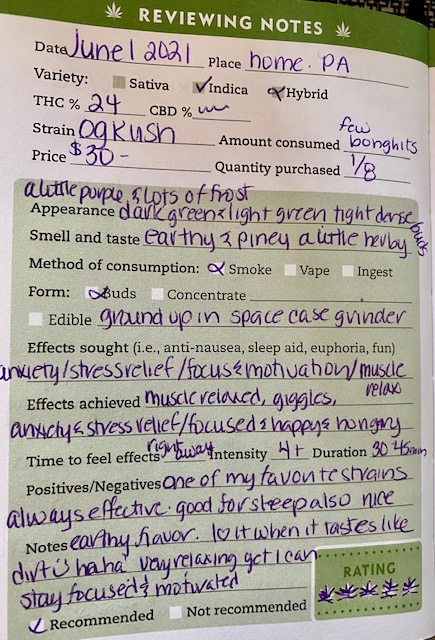 REVIEWING NOTES
Date June 1 2021 Place home. PA
Variety: Sativa Indica Hybrid
THC % 24 CBD %
few
Strain OgKush Amount consumed bonghits
Price $30- Quantity purchased 1/8
a little purple, & lots of frost
Appearance dark green & light green tight dense buds
Smell and taste earthy & piney a little herby
Method of consumption: Smoke Vape Ingest
Form: Buds Concentrate
Edible ground up in space case grinder
Effects sought (i.e., anti-nausea, sleep aid, euphoria, fun)
anxiety/stress relief/focus & motivation/muscle
relax
Effects achieved muscle relaxed, giggles,
anxiety & stress relief/focused & happy & hungry
right away
Time to feel effects Intensity 4+ Duration 30 45min
Positives/Negatives one of my favorite strains
always effective. good for sleep also nice
Notes earthy flavor. I ♡ it when it tastes like
dirt haha very relaxing yet I can
stay focused & motivated
RATING
Recommended Not recommended